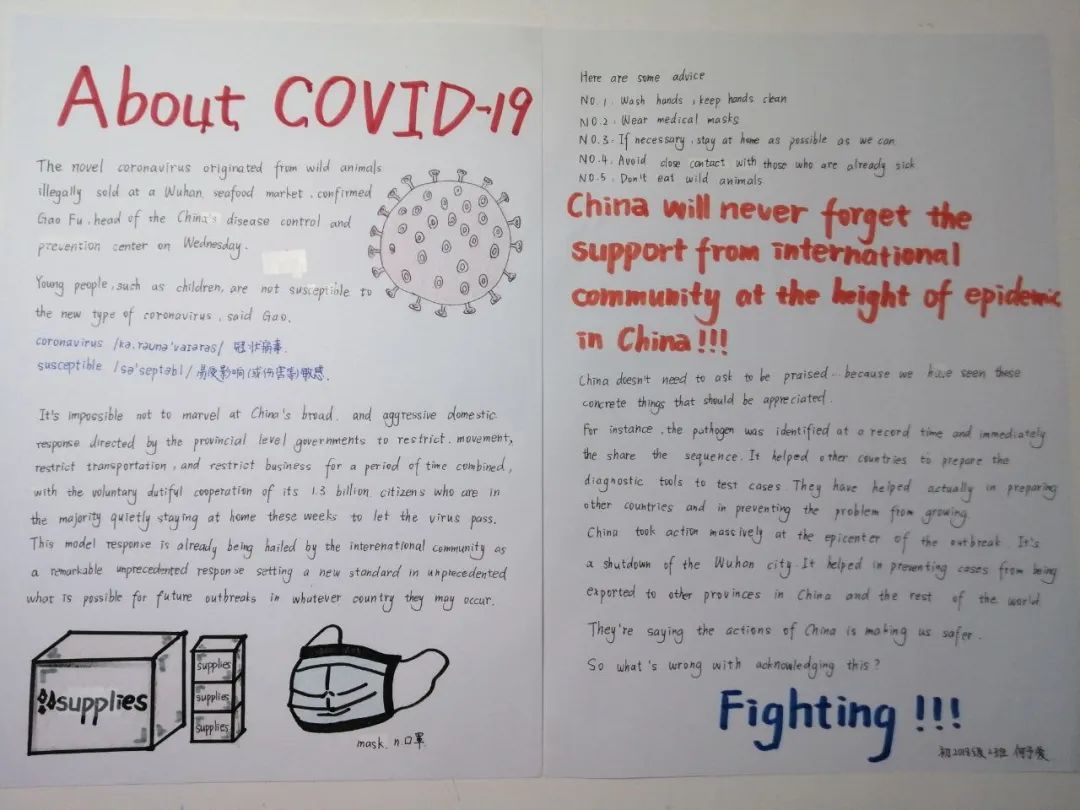 About COVID-19
The novel coronavirus originated from wild animals
illegally sold at a Wuhan seafood market, confirmed
Gao Fu, head of the China's disease control and
prevention center on Wednesday.
Young people, such as children, are not susceptible to
the new type of coronavirus, said Gao.
coronavirus /kə,rəunə'vaɪərəs/ 冠状病毒.
susceptible /sə'septəbl/ 易受影响(或伤害等)敏感.
It's impossible not to marvel at China's broad. and aggressive domestic
response directed by the provincial level governments to restrict. movement,
restrict transportation, and restrict business for a period of time combined,
with the voluntary dutiful cooperation of its 1.3 billion. citizens who are in
the majority quietly staying at home these weeks to let the virus pass.
This model response is already being hailed by the interenational community as
a remarkable unprecedented response setting a new standard in unprecedented
what is possible for future outbreaks in whatever country they may occur.
supplies
supplies
supplies
supplies
mask. n.口罩
Here are some advice
NO.1. Wash hands, keep hands clean
NO.2. Wear medical masks
NO.3. If necessary, stay at home as possible as we can
NO.4. Avoid close contact with those who are already sick
NO.5. Don't eat wild animals.
China will never forget the
support from international
community at the height of epidemic
in China!!!
China doesn't need to ask to be praised... because we have seen these
concrete things that should be appreciated.
For instance, the pathogen was identified at a record time and immediately
the share the sequence. It helped other countries to prepare the
diagnostic tools to test cases. They have helped actually in preparing
other countries and in preventing the problem from growing.
China took action massively at the epicenter of the outbreak. It's
a shutdown of the Wuhan city. It helped in preventing cases from being
exported to other provinces in China and the rest of the world.
They're saying the actions of China is making us safer.
So what's wrong with acknowledging this?
Fighting !!!
初2018级2班 何予爱